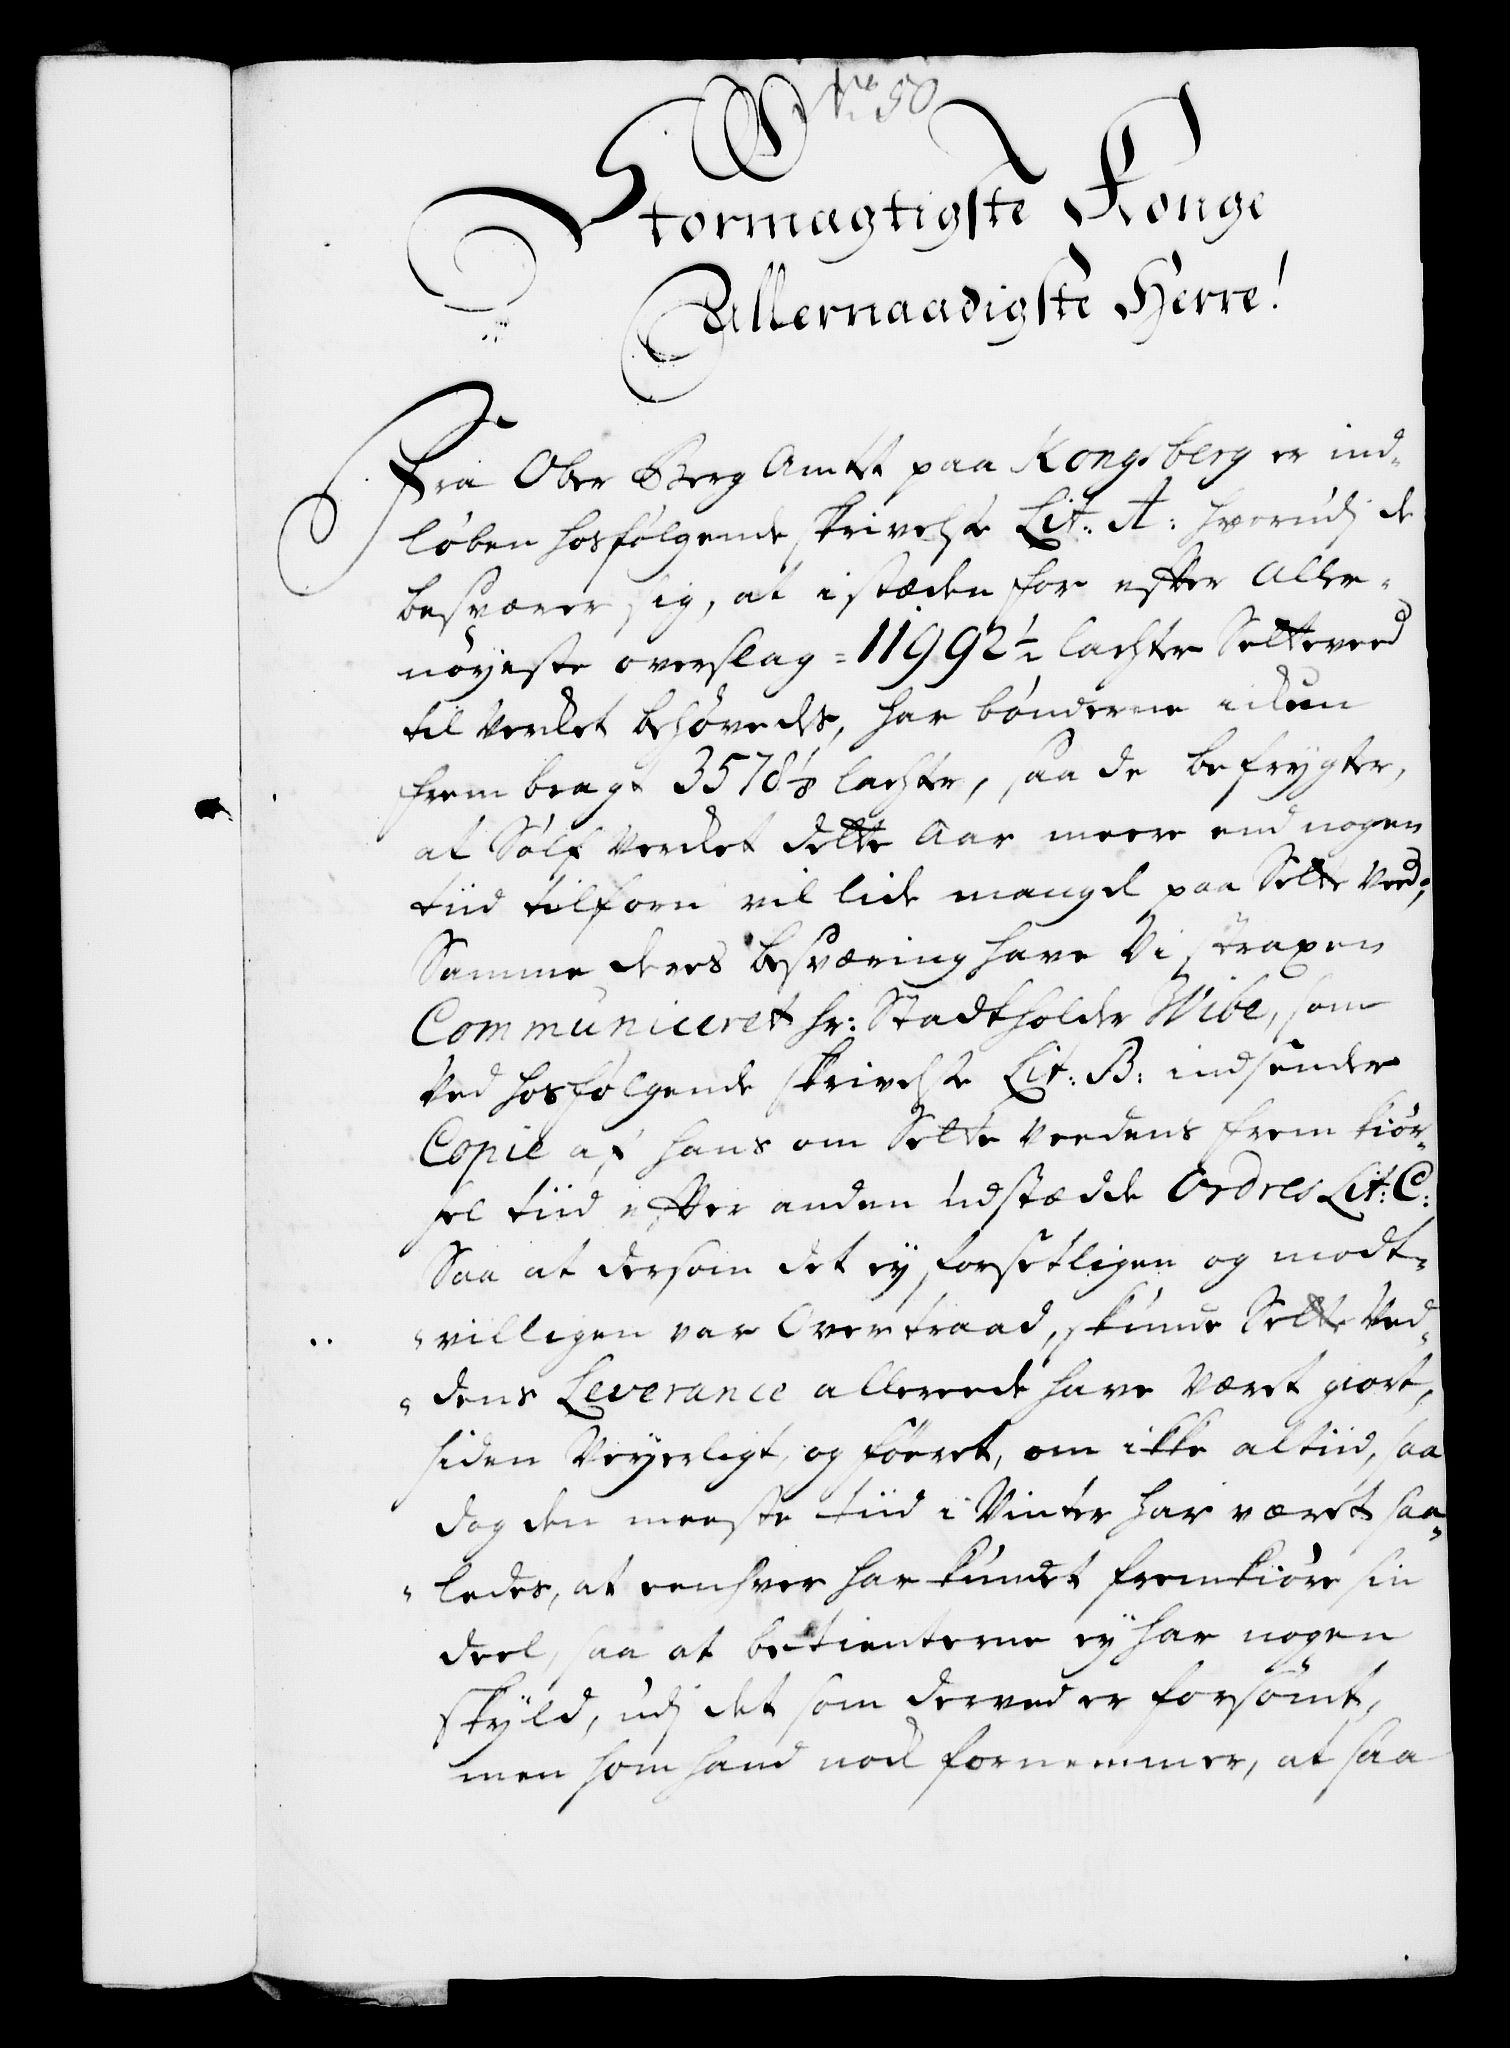 No 50
Stormægtigste Konge
Allernaadigste Herre!
Fra Ober Berg Amtet paa Kongsberg er ind-
løben hosfølgende skrivelse Lit: A: hvorudj de
besværer sig, at istæden for efter Aller-
nøyeste overslag = 11992½ lachter Setteveed
til Verket behøvedes, har bønderne ikun
frem bragt 3578⅛ lachter, saa de befrygter,
at Sølf Verket dette Aar meere end nogen
tiid tilforn vil lide mangel paa Sette Veed;
Samme deres besværing have Vi straxen
Communiceret hr: Stadtholder Wibe, som
Ved hosfølgende skrivelse Lit: B: indsender
Copie af hans om Sette Veedens frem kiør-
sel tiid efter anden Udstædde Ordres Lit: C:
Saa at dersom det ey forsetligen og modt-
villigen var Overtraad, kunde Sette Ved-
dens Leverance allereede have været giort,
siden Veyerligt og føeret, om ikke altiid, saa
dog den meeste tiid i Vinter har været saa-
ledes, at eenhver har kundet fremkiøre sin
deel, saa at betienterne ey har nogen
skyld, udj det som derved er forsømt,
men som hand nock fornemmer, at saa